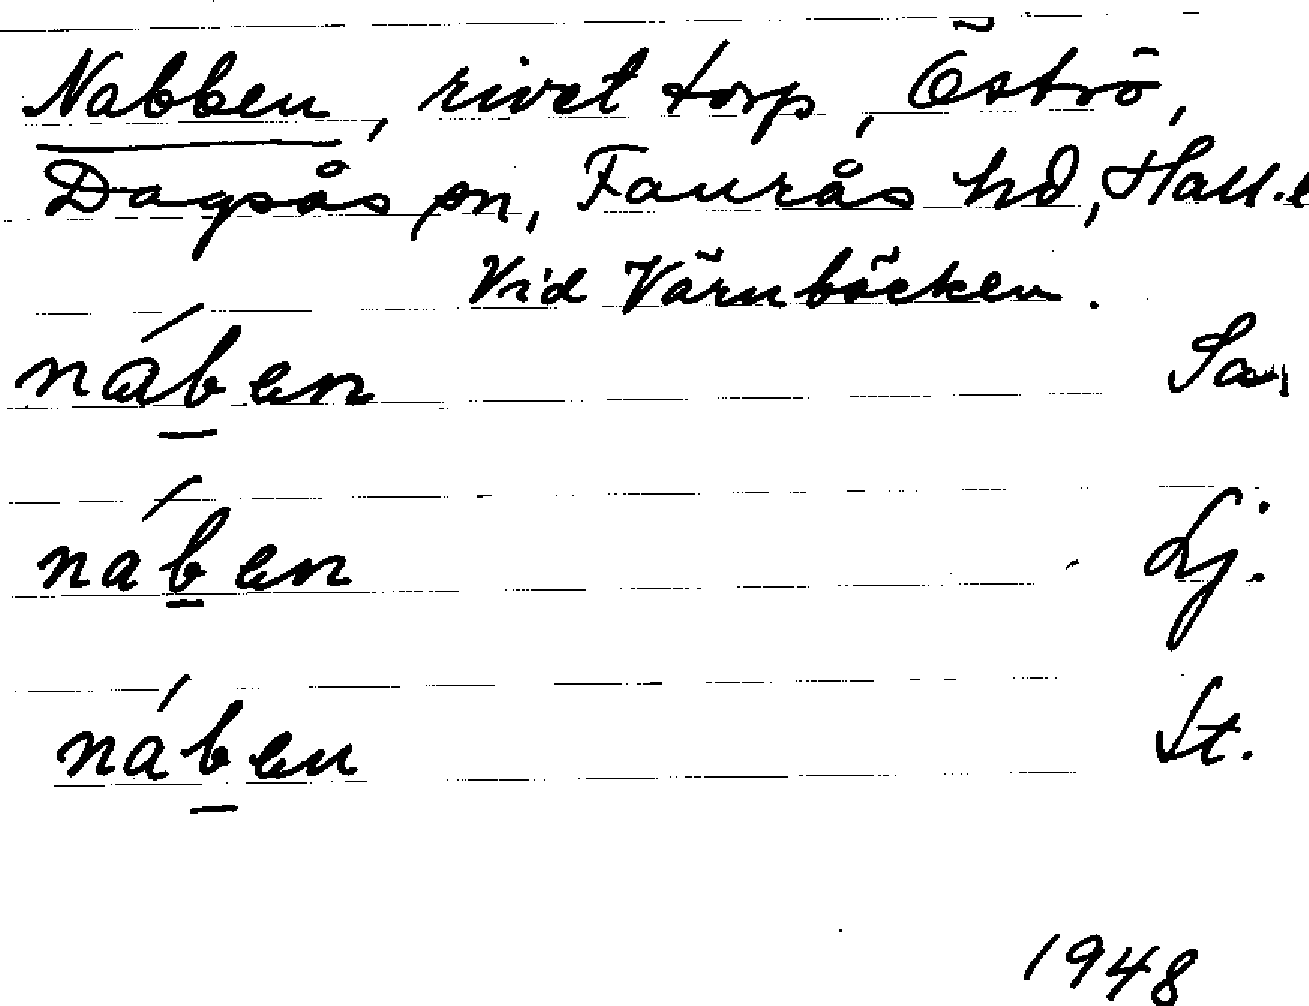 Nabben, rivet torp, Öströ,
Dagsås sn, Faurås hd, Hall.l
Vid Värnbäcken.
náb̲en Sa.
náb̲en Lj.
náb̲en St.
1948